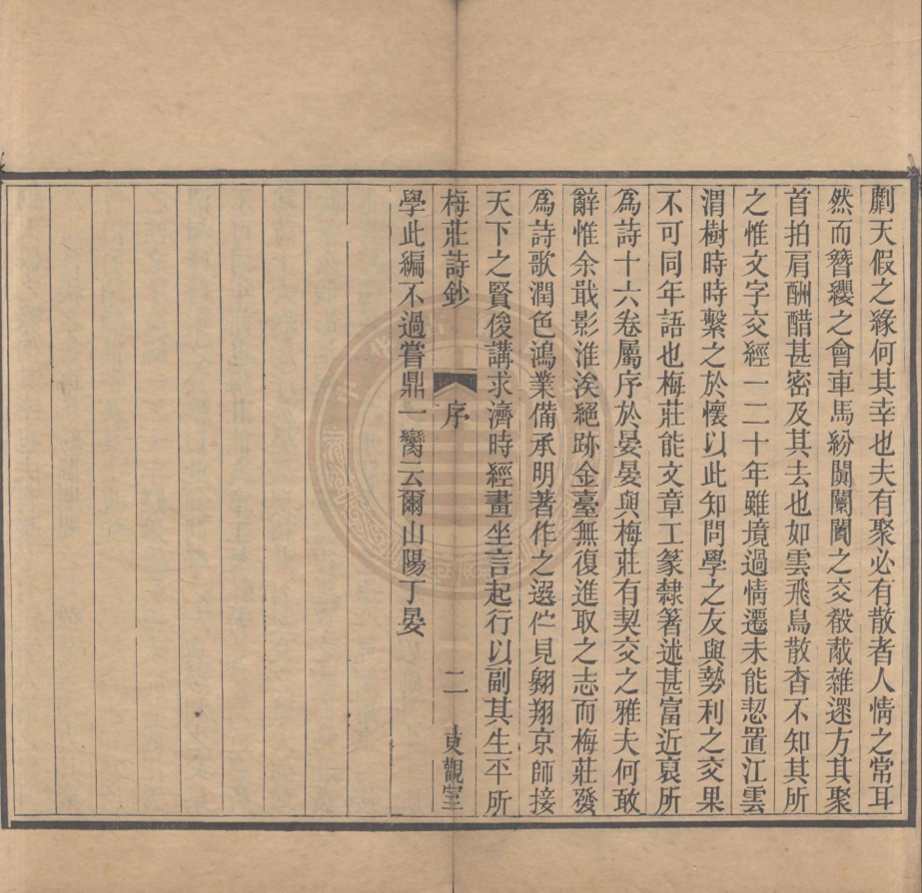 劘天假之緣何其幸也夫有聚必有散者人情之常耳
然而簪纓之會車馬紛闐闤闠之交殽胾雜遝方其聚
首拍肩酬醋甚密及其去也如雲飛鳥散杳不知其所
之惟文字交經一二十年雖境過情遷未能恝置江雲
渭樹時時繫之於懷以此知問學之友與勢利之交果
不可同年語也梅莊能文章工篆隸箸述甚富近裒所
爲詩十六卷屬序於晏晏與梅莊有契交之雅夫何敢
辭惟余戢影淮涘絕跡金臺無復進取之志而梅莊發
爲詩歌潤色鴻業備承明著作之選伫見翱翔京師接
天下之賢俊講求濟時經畫坐言起行以副其生平所
梅莊詩鈔 序 二 觀室
學此編不過嘗鼎一臠云爾山陽丁晏